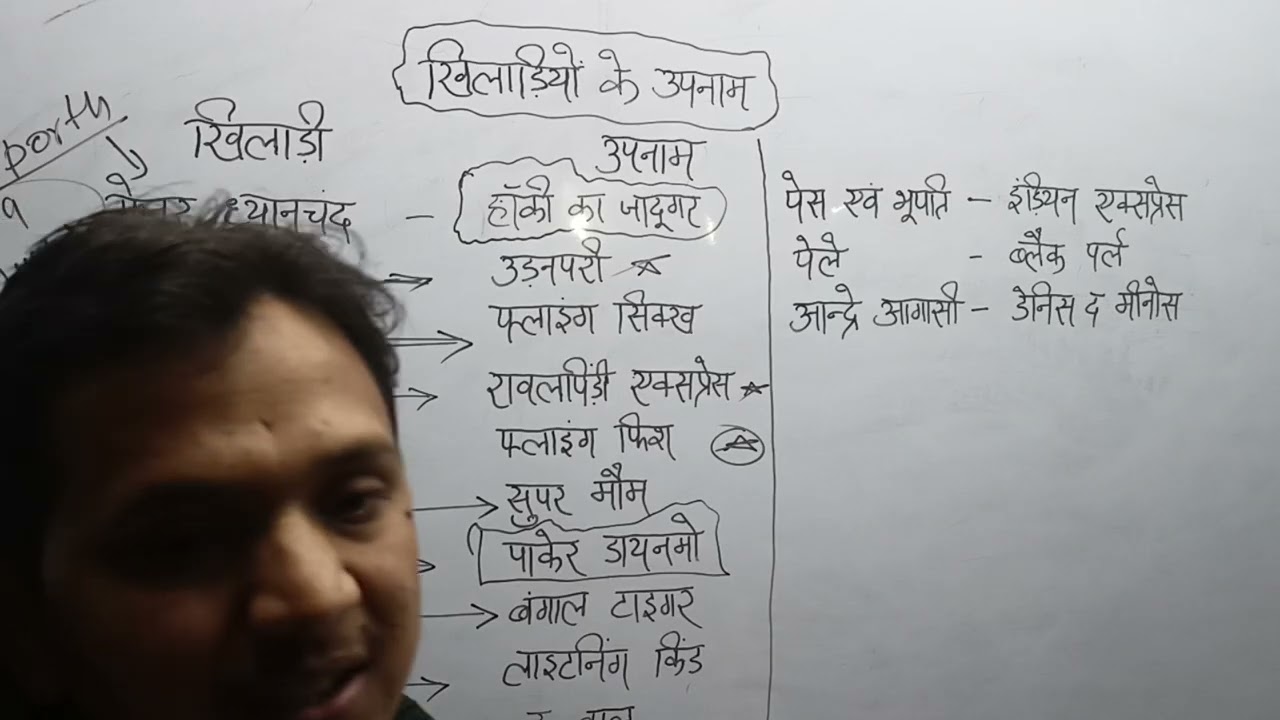 खिलाड़ियों के उपनाम
porth
खिलाड़ी
उपनाम
ध्यानचंद - हॉकी का जादूगर
उड़नपरी
फ्लाइंग सिक्ख
रावलपिंड़ी एक्सप्रेस
फ्लाइंग फिश
सुपर मौम
पाकेर डायनमो
बंगाल टाइगर
लाइटनिंग किंड़
पेस एवं भूपति - इंड़ियन एक्सप्रेस
पेले - ब्लैक पर्ल
आन्द्रे आगासी - डेनिस द मीनोस